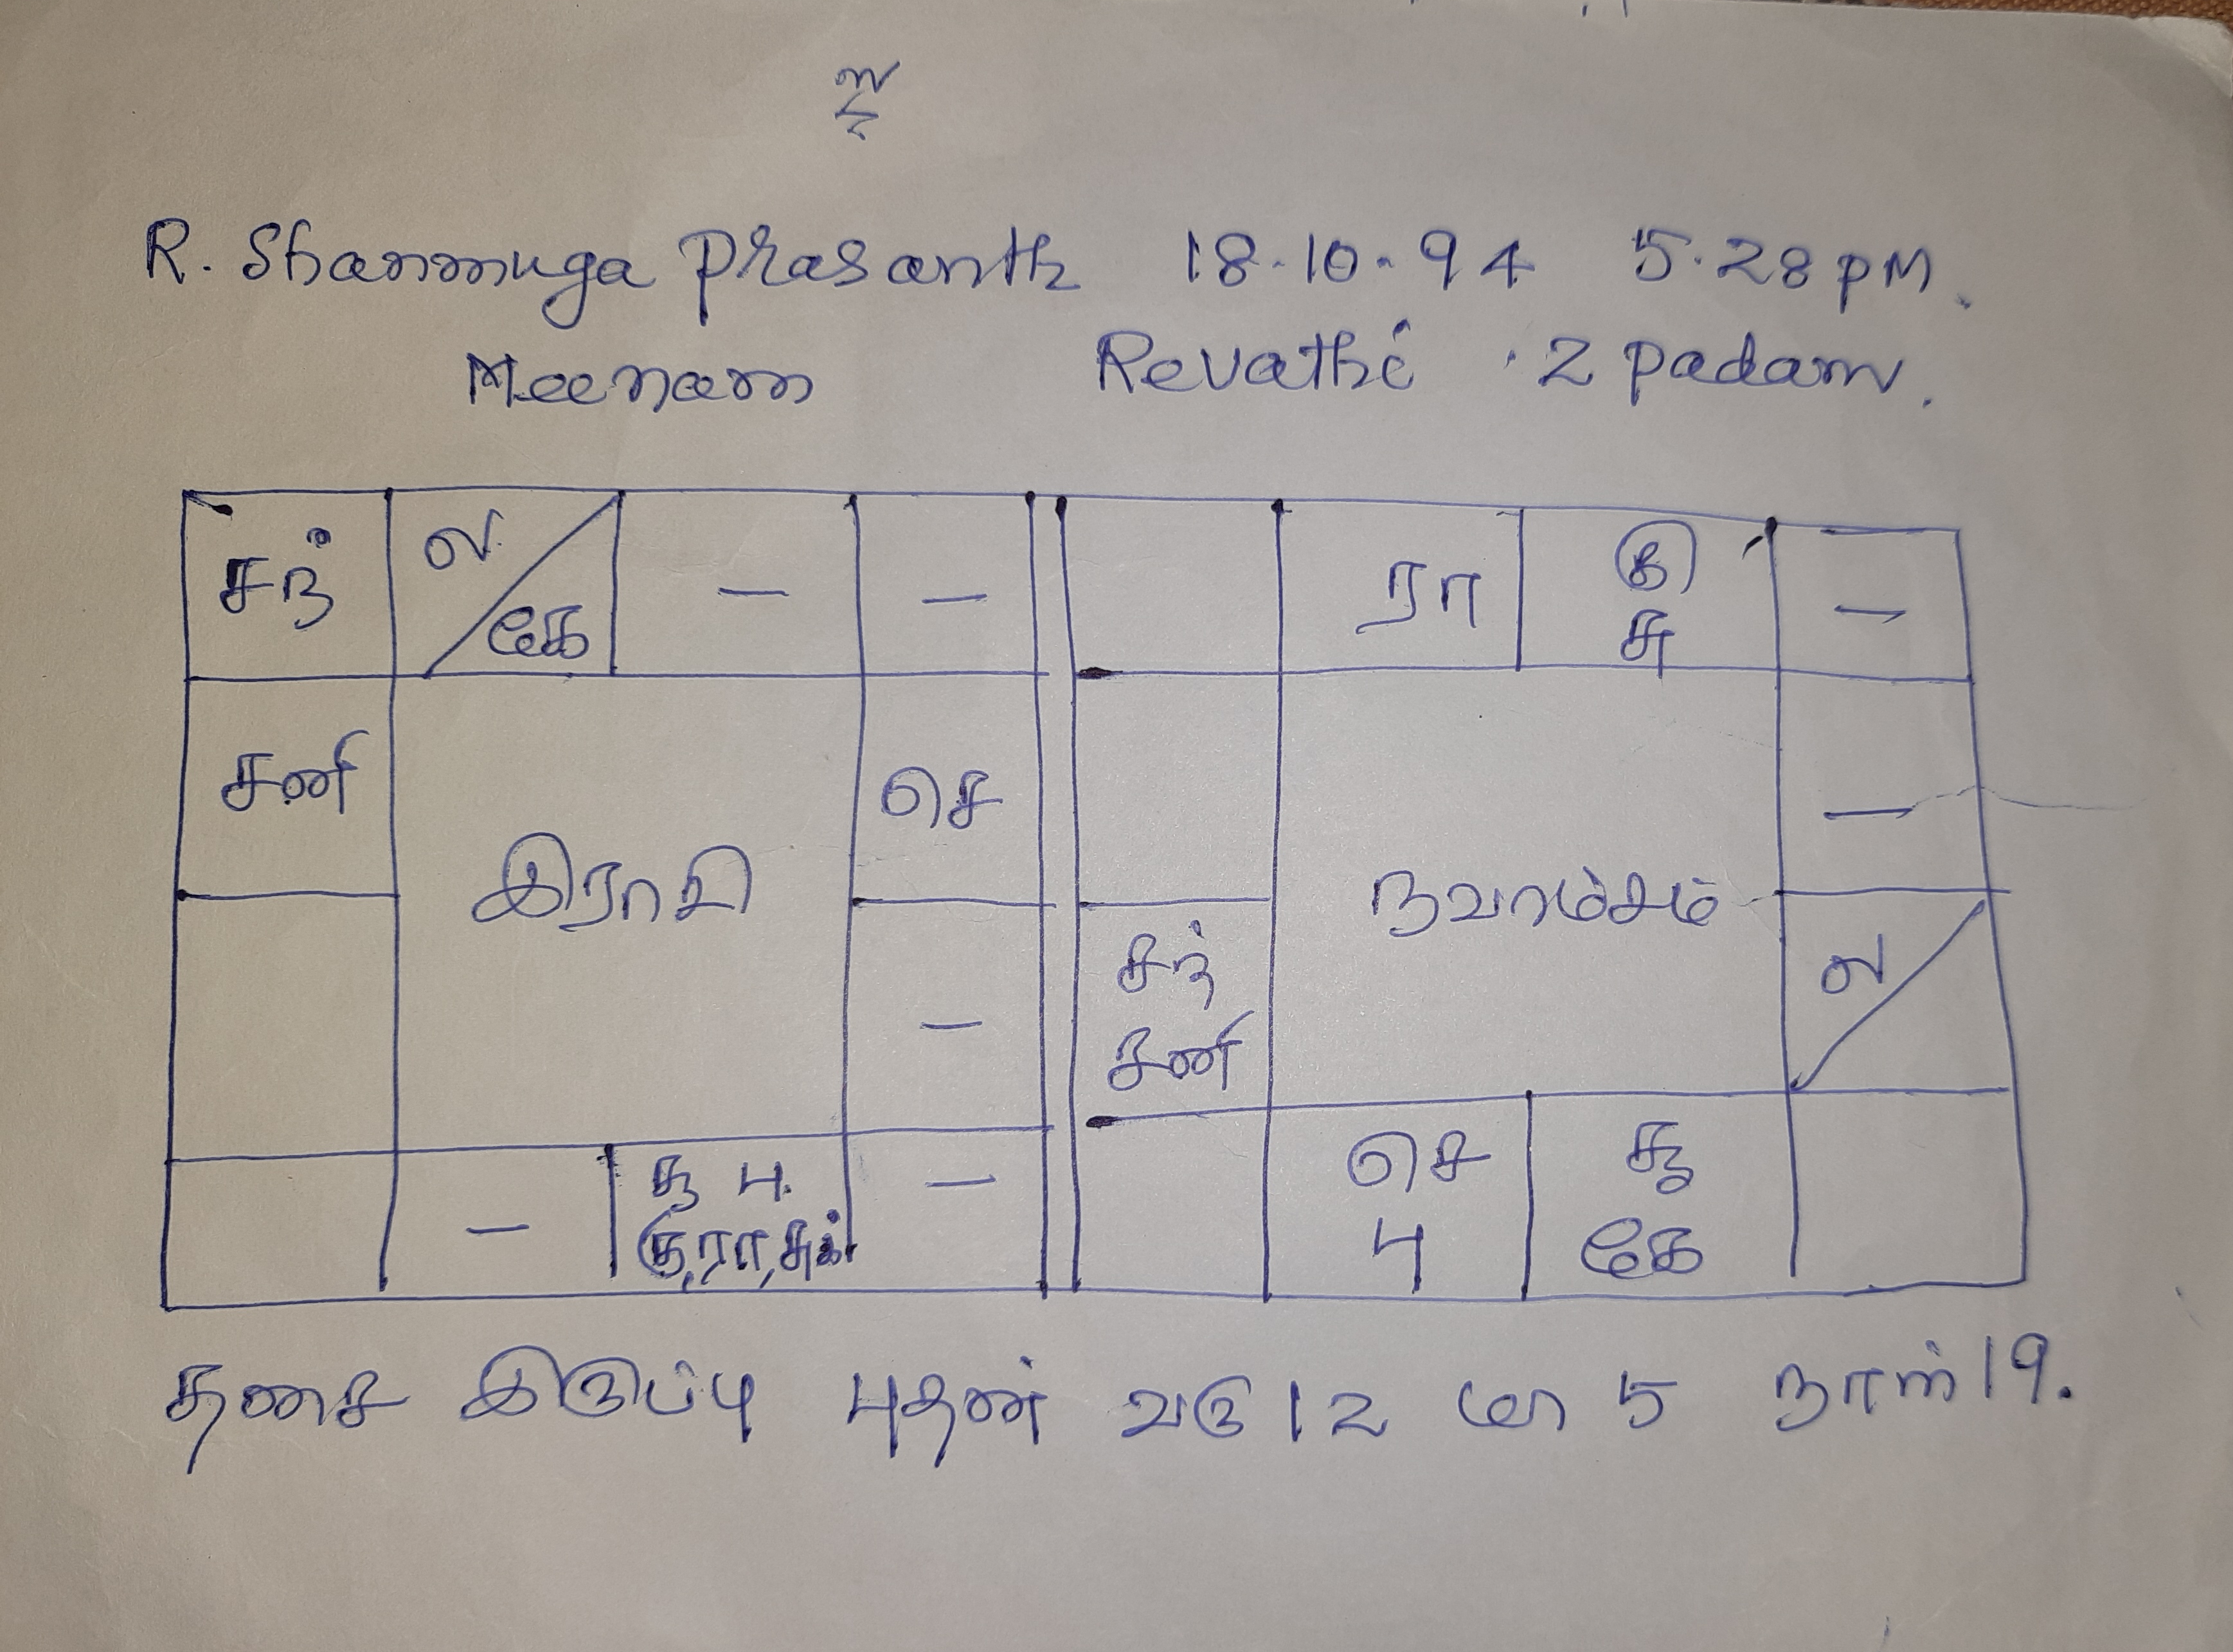 உ
R. Shanmuga Prasanth 18.10.94 5.28 PM.
Meenam Revathi .2 Padam.
சந் ல கே — —
சனி செ
இராசி
—
— சூ பு. குரா,சுக் —
ரா கு சு —
—
நவாம்சம்
சந் சனி ல
செ பு சூ கே
தசை இருப்பு புதன் வரு 12 மா 5 நாள் 19.